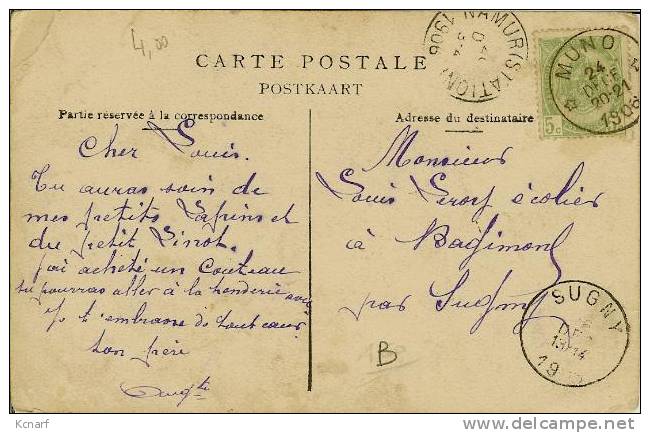 4,00
CARTE POSTALE
POSTKAART
Partie réservée à la correspondance
Adresse du destinataire
Cher Louis.
Tu auras soin de
mes petits Lapins et
du petit Linot.
j'ai acheté un Couteau
tu pourras aller à la tenderie avec
Je t'embrasse de tout coeur
ton père
Monsieur
Louis Leroy écolier
à Bagimont
par Sugny
NAMUR (STATION) 1906
5c
MUNO
24
DEC
20-21
1906
SUGNY
13-14
19
B
Kcnarf
delcampe.net